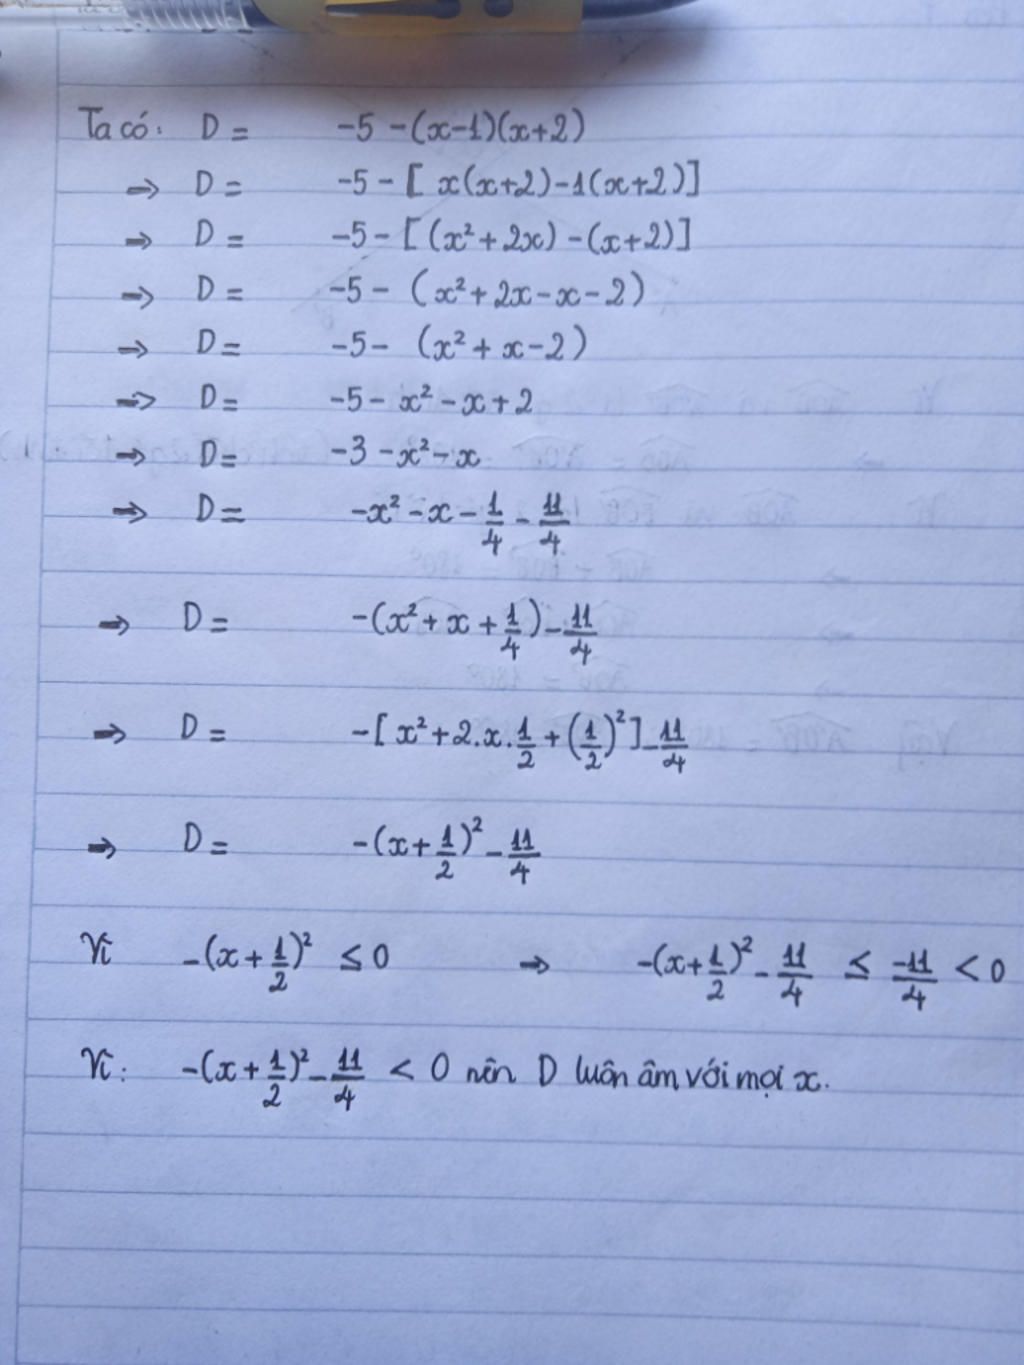 Ta có: D = -5 - (x-1)(x+2)
⇒ D = -5 - [ x(x+2) - 1(x+2)]
⇒ D = -5 - [ (x² + 2x) - (x+2)]
⇒ D = -5 - (x² + 2x - x - 2)
⇒ D = -5 - (x² + x - 2)
⇒ D = -5 - x² - x + 2
⇒ D = -3 - x² - x
⇒ D = -x² - x - 1/4 - 11/4
⇒ D = -(x² + x + 1/4) - 11/4
⇒ D = -[ x² + 2.x.1/2 + (1/2)²] - 11/4
⇒ D = -(x + 1/2)² - 11/4
Vì -(x + 1/2)² ≤ 0 ⇒ -(x + 1/2)² - 11/4 ≤ -11/4 < 0
Vì: -(x + 1/2)² - 11/4 < 0 nên D luôn âm với mọi x.